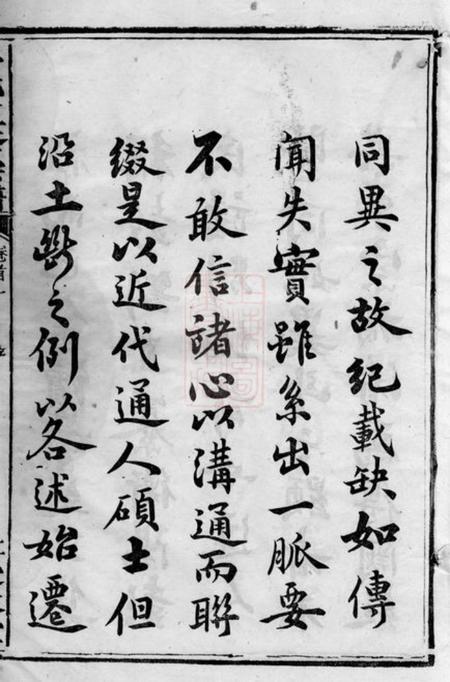 同異之故紀載缺如傳
聞失實雖系出一脈要
不敢信諸心以溝通而聯
綴是以近代通人碩士但
沿土斷之例以各述始遷
卷首